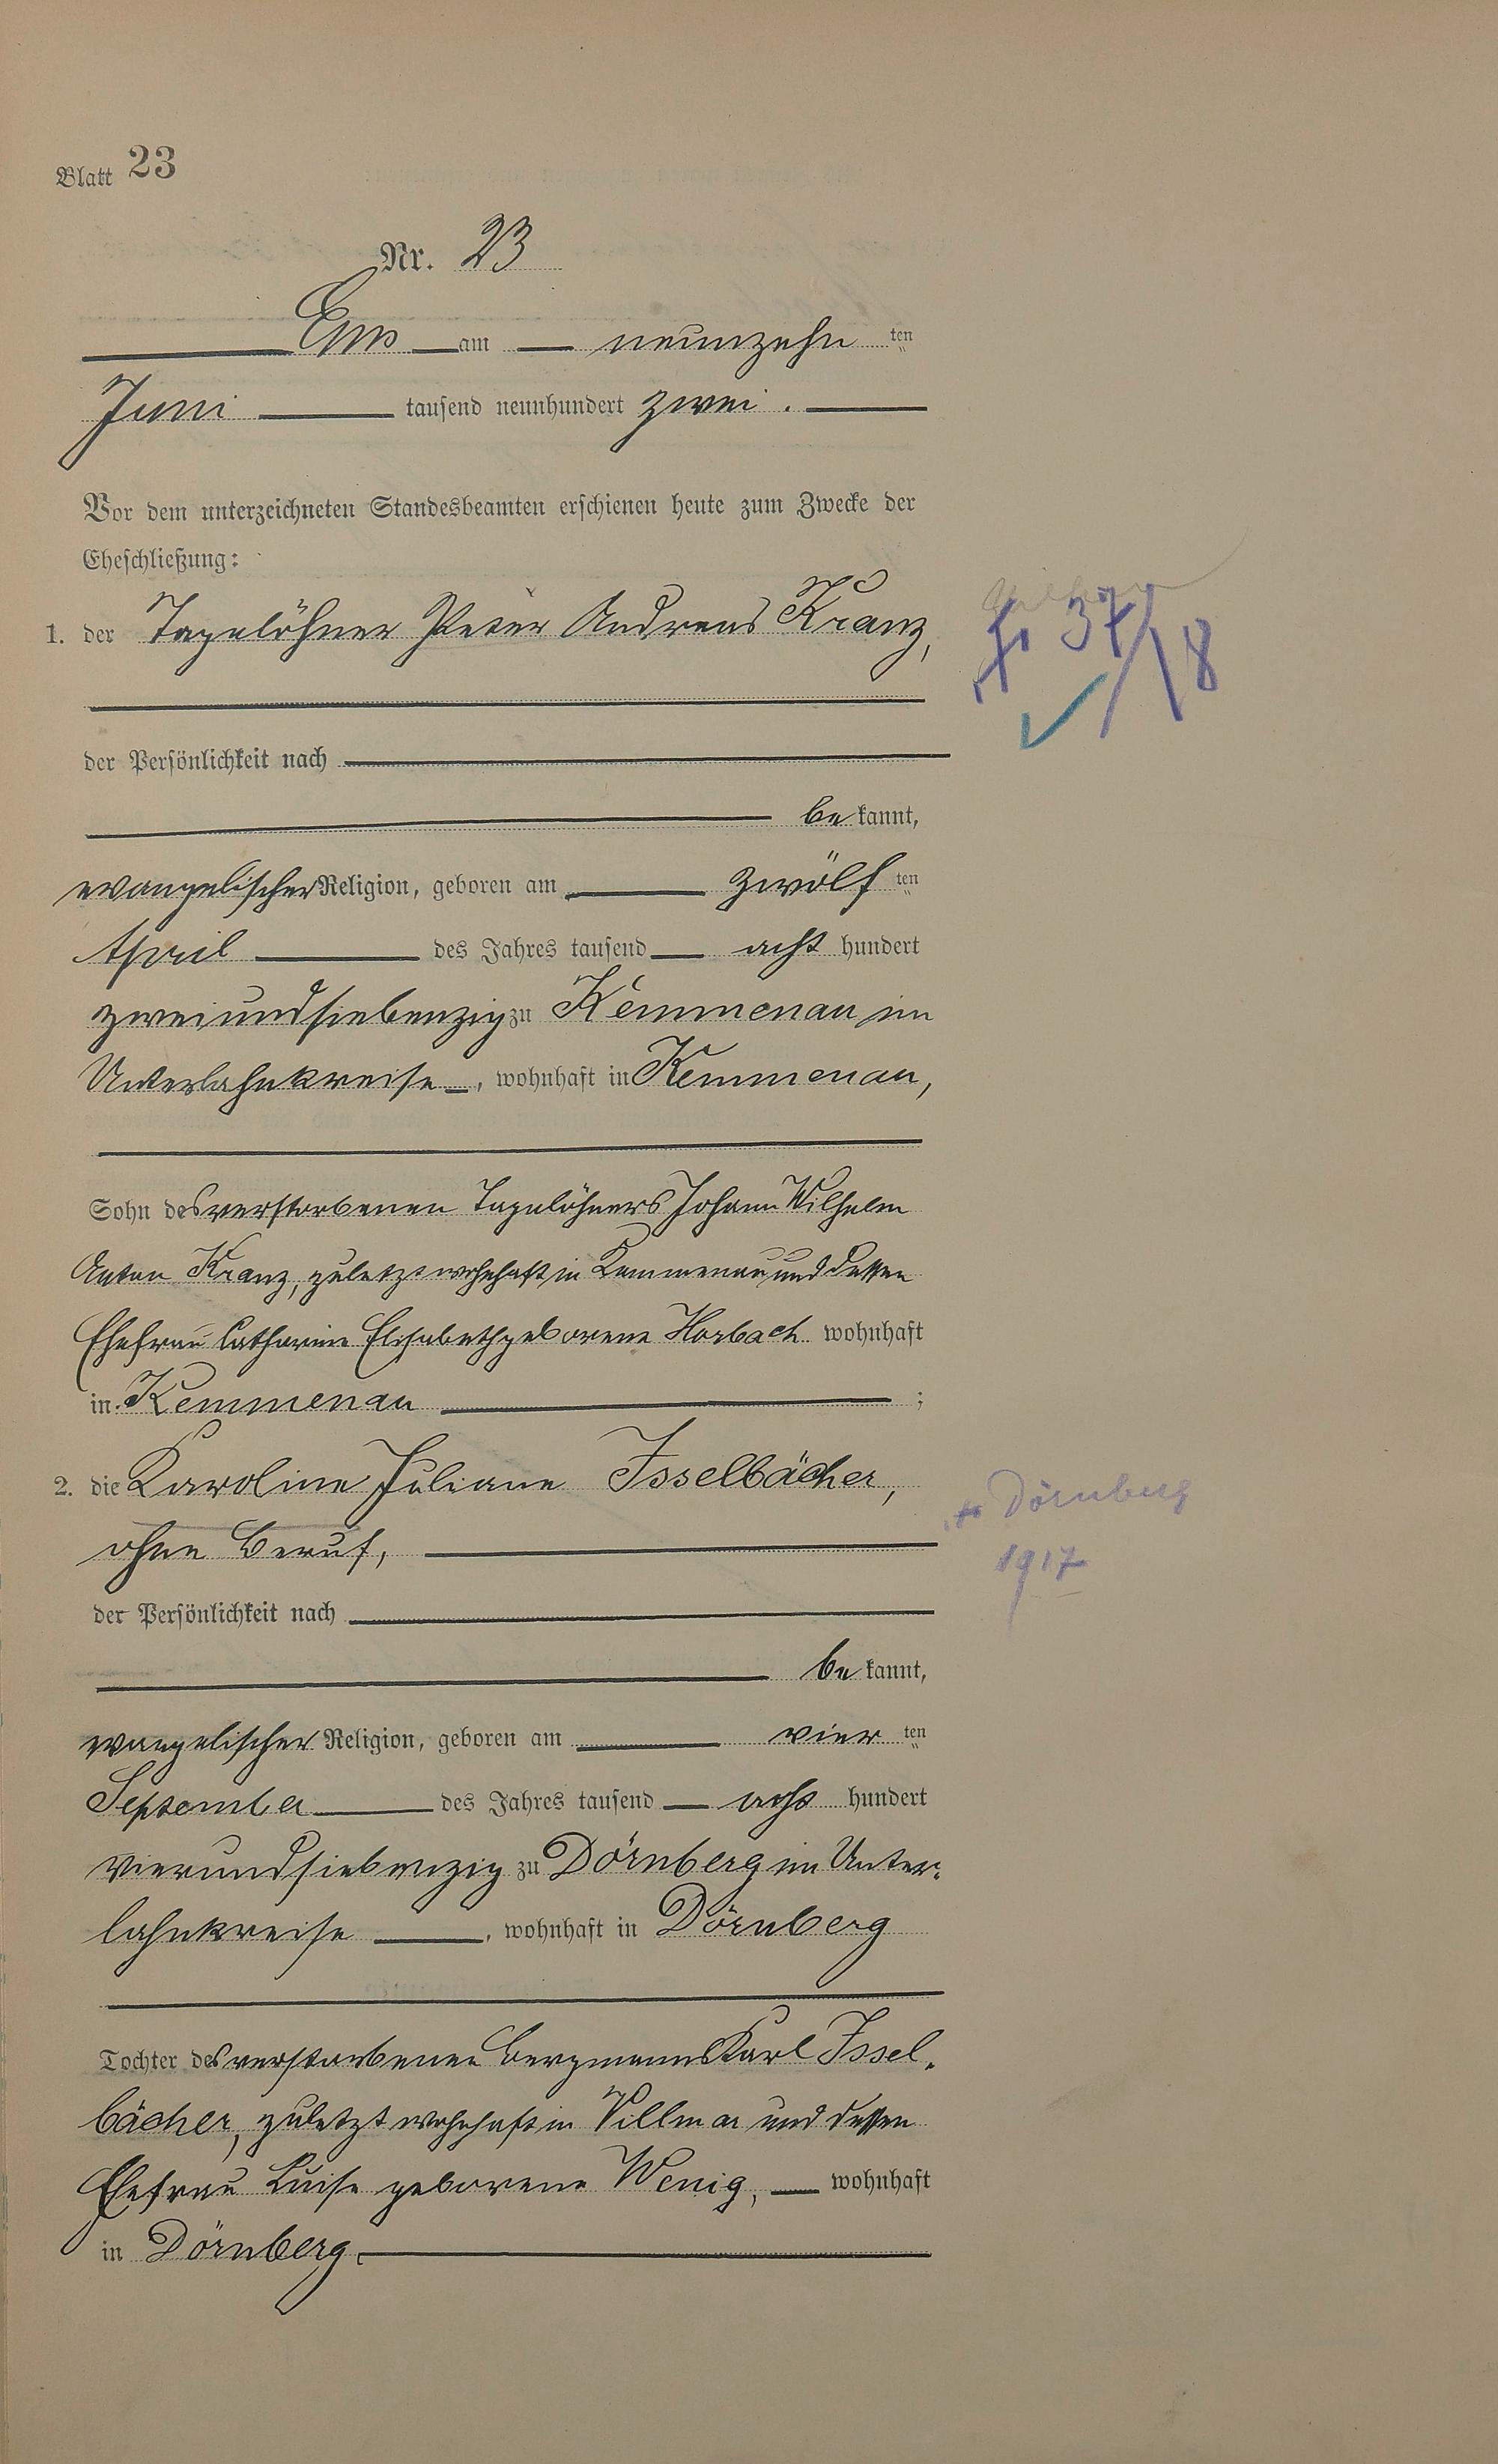 Blatt 23
Nr. 23
Ems am neunzehn ten
Juni tausend neunhundert zwei.
Vor dem unterzeichneten Standesbeamten erschienen heute zum Zwecke der
Eheschließung:
1. der Tagelöhner Peter Andreas Kranz,
37/18
der Persönlichkeit nach
be kannt,
evangelischer Religion, geboren am zwölf ten
April des Jahres tausend acht hundert
zweiundsiebenzig zu Kemmenau im
Unterlahnkreise, wohnhaft in Kemmenau,
Sohn des verstorbenen Tagelöhners Johann Wilhelm
Anton Kranz, zuletzt wohnhaft in Kemmenau und dessen
Ehefrau Catharine Elisabeth geborene Horbach wohnhaft
in Kemmenau ;
2. die Karoline Juliane Isselbächer,
Dörnberg
ohne Beruf,
1917
der Persönlichkeit nach
be kannt,
evangelischer Religion, geboren am vier ten
September des Jahres tausend acht hundert
vierundsiebenzig zu Dörnberg im Unter-
lahnkreise, wohnhaft in Dörnberg
Tochter des verstorbenen Bergmanns Karl Issel-
bächer, zuletzt wohnhaft in Villmar und dessen
Ehefrau Luise geborene Wenig, wohnhaft
in Dörnberg.